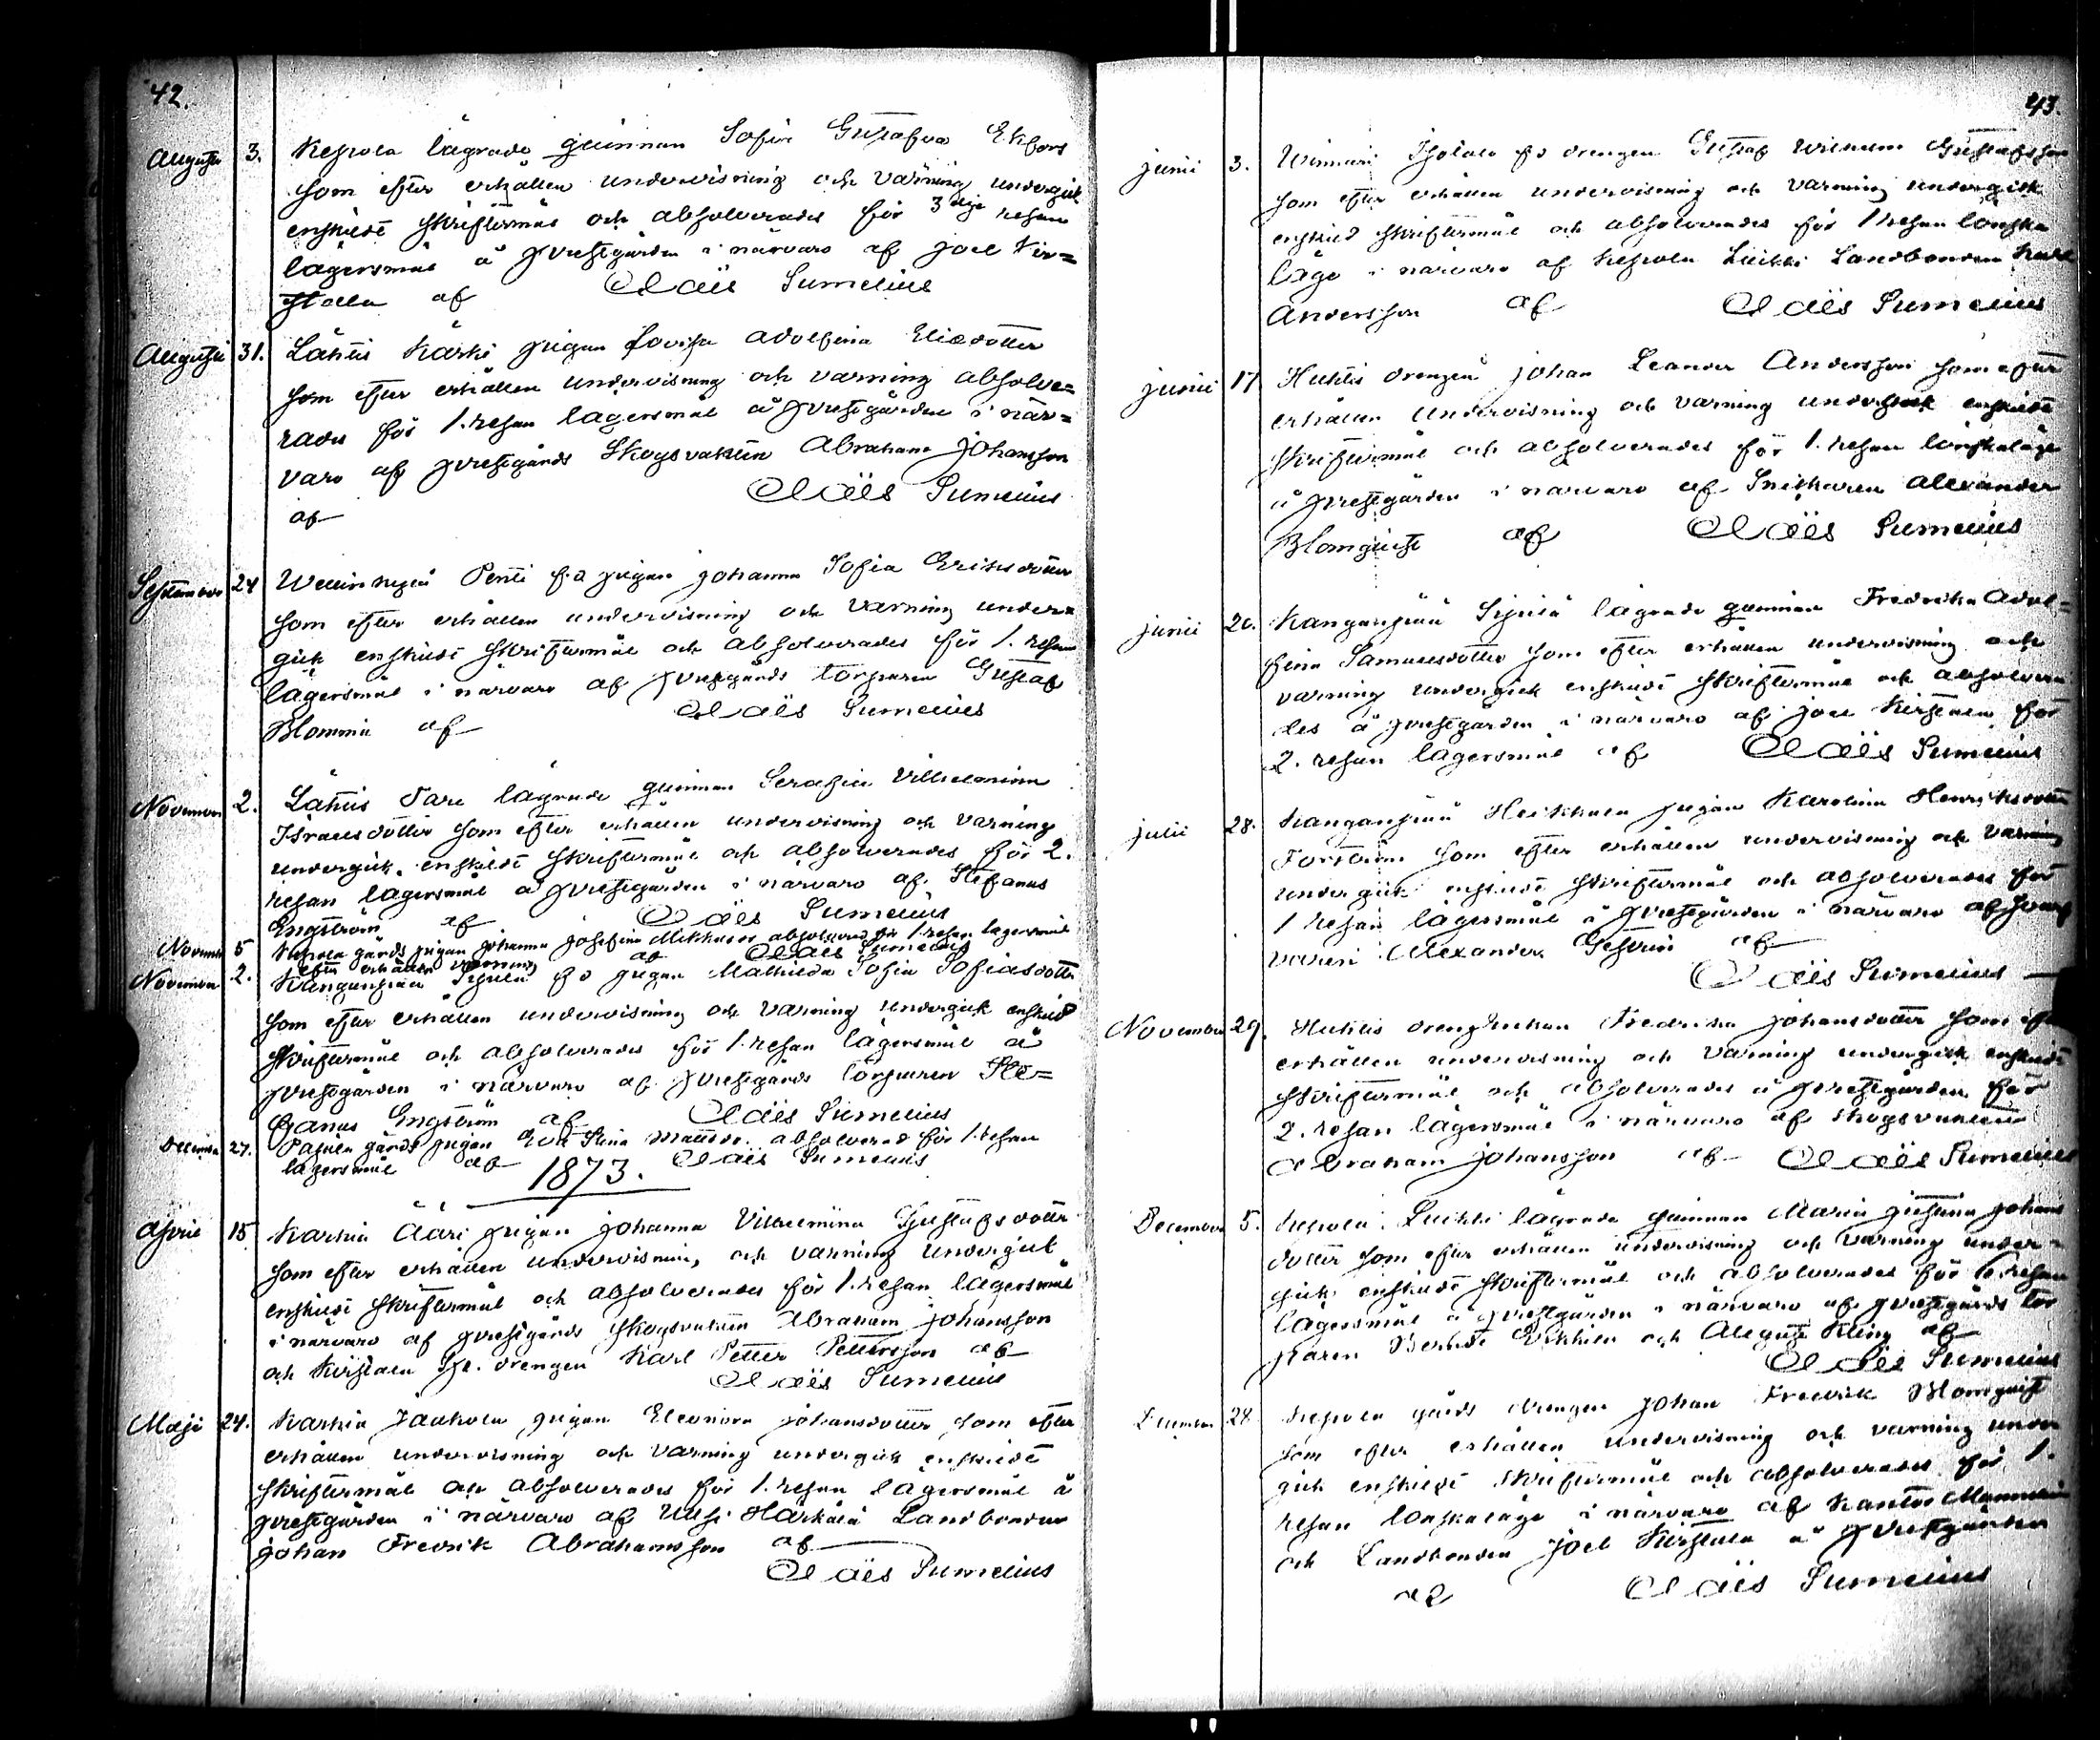 42.
Augusti 3. Kepola lägrade qvinnan Sofia Gustafva Ekfors
som efter erhållen undervisning och varning undergick
enskildt skriftermål och absolverades för 3dje resan
lägersmål å prestgården i närvaro af Joel Kir=
stala af Claës Sumelius
Augusti 31. Lähtis Kärki pigan Lovisa Adolfina Eliædotter
som efter erhållen undervisning och varning absolve=
rades för 1. resan lägersmål å prestgården i när=
varo af prestgårds Skogsvakten Abraham Johansson
af Claës Sumelius
September 24 Penti f.d pigan Johanna Sofia Eriksdotter
som efter erhållen undervisning och varning under=
gick enskildt skriftermål och absolverades för 1. resan
lägersmål i närvaro af prestgårds torparen Gustaf
Blommi af Claës Sumelius
November 2. Lähtis Tare lägrade qvinnan Serafia Vilhelmina
Israelsdotter som efter erhållen undervisning och varning
undergick enskildt skriftermål och absolverades för 2.
resan lägersmål å prestgården i närvaro af Stefanus
Engström af Claës Sumelius
November 5 Kepola gårds pigan Johanna Josefina Mikkelsdr absolverad för 1. resan lägersmål
efter erhållen varning af Claës Sumelius
November 2. Kanganpää Sipilä f.d pigan Mathilda Sofia Sofiasdotter
som efter erhållen undervisning och varning undergick enskild
skriftermål och absolverades för 1. resan lägersmål å
prestgården i närvaro af prestgårds torparen Ste=
fanus Engström af Claës Sumelius
December 27. gårds pigan Eva Stina Mattsdr. absolverad för 1. resan
lägersmål af Claës Sumelius
1873.
April 15 Karhia Ääri pigan Johanna Vilhelmina Gustafsdotter
som efter erhållen undervisning och varning undergick
enskildt skriftermål och absolverades för 1. resan lägersmål
i närvaro af prestgårds Skogsvakten Abraham Johansson
och Kirstala drengen Karl Petter Pettersson af
Claës Sumelius
Maji 24. Karhia Jaakola pigan Eleonora Johansdotter som efter
erhållen undervisning och varning undergick enskildt
skriftermål och absolverades för 1. resan lägersmål å
prestgården i närvaro af Uusi Härkälä Landbonden
Johan Fredrik Abrahamsson af
Claës Sumelius
43.
Junii 3. Isotalo f.d drengen Gustaf Wilhelm Gustafsson
som efter erhållen undervisning och varning undergick
enskild skriftermål och absolverades för 1 resan lönska
läge i närvaro af Kepola Luikki Landbonden Karl
Andersson af Claës Sumelius
Junii 17 Huhtis drengen Johan Leander Andersson som efter
erhållen undervisning och varning undergick enskildt
skriftermål och absolverades för 1. resan lönskaläge
å prestgården i närvaro af Snickaren Alexander
Blomqvist af Claës Sumelius
Junii 20. Kanganpää Sipilä lägrade qvinnan Fredrika Adol=
fina Samuelsdotter som efter erhållen undervisning och
varning undergick enskildt skriftermål och absolvera
des å prestgården i närvaro af Joel Kirstala för
2. resan lägersmål af Claës Sumelius
Julii 28. Kanganpää Heikkala pigan Karolina Henriksdotter
som efter erhållen undervisning och varning
undergick enskildt skriftermål och absolverades för
1 resan lägersmål å prestgården i närvaro af
Alexander af
Claës Sumelius
November 29. Huhtis Fredrika Johansdotter som efter
erhållen undervisning och varning undergick enskildt
skriftermål och absolverades å prestgården för
2. resan lägersmål i närvaro af skogsvakten
Abraham Johansson af Claës Sumelius
December 5. Kepola Luikki lägrade qvinnan Maria Justina Johans
dotter som efter erhållen undervisning och varning under=
gick enskildt skriftermål och absolverades för resan
lägersmål å prestgården i närvaro af prestgårds tor
paren Erkkilä och August Kling af
Claës Sumelius
December 28 Kepola gårds drengen Johan Fredrik Blomqvist
som efter erhållen undervisning och varning under
gick enskildt skriftermål och absolverades för 1.
resan lönskaläge i närvaro af Kantor
och Landbonden Joel Kirstala å prestgården
af Claës Sumelius